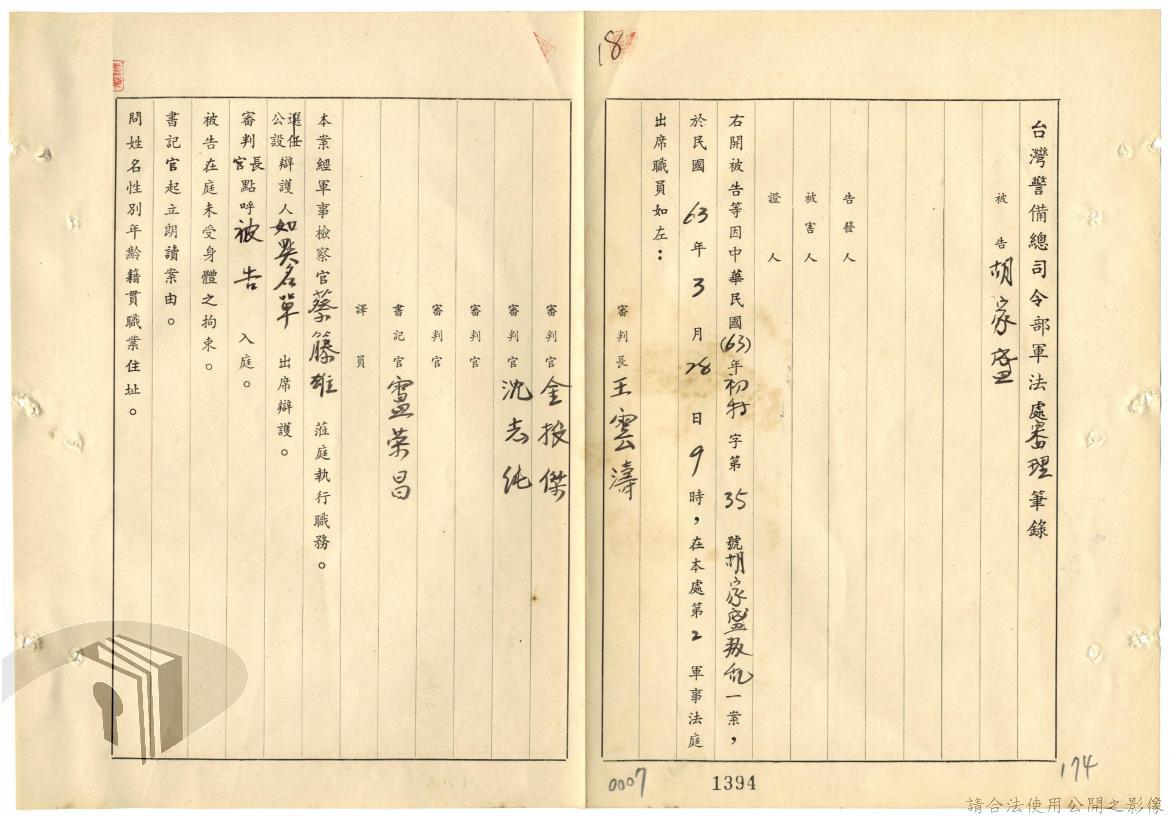 18
台灣警備總司令部軍法處審理筆錄
被告胡家盛
告發人
被害人
證人
右開被告等因中華民國(63)年初特字第35號胡家盛叛亂一案，
於民國63年3月28日9時，在本處第2軍事法庭
出席職員如左：
審判長王雲濤
審判官金振傑
審判官沈志純
審判官
審判官
書記官 榮昌
譯員
本案經軍事檢察官蔡籐雄蒞庭執行職務。
選任公設辯護人如點名單出席辯護。
審判長官點呼被告入庭。
被告在庭未受身體之拘束。
書記官起立朗讀案由。
問姓名性別年齡籍貫職業住址。
0007
1394
174
請合法使用公開之影像